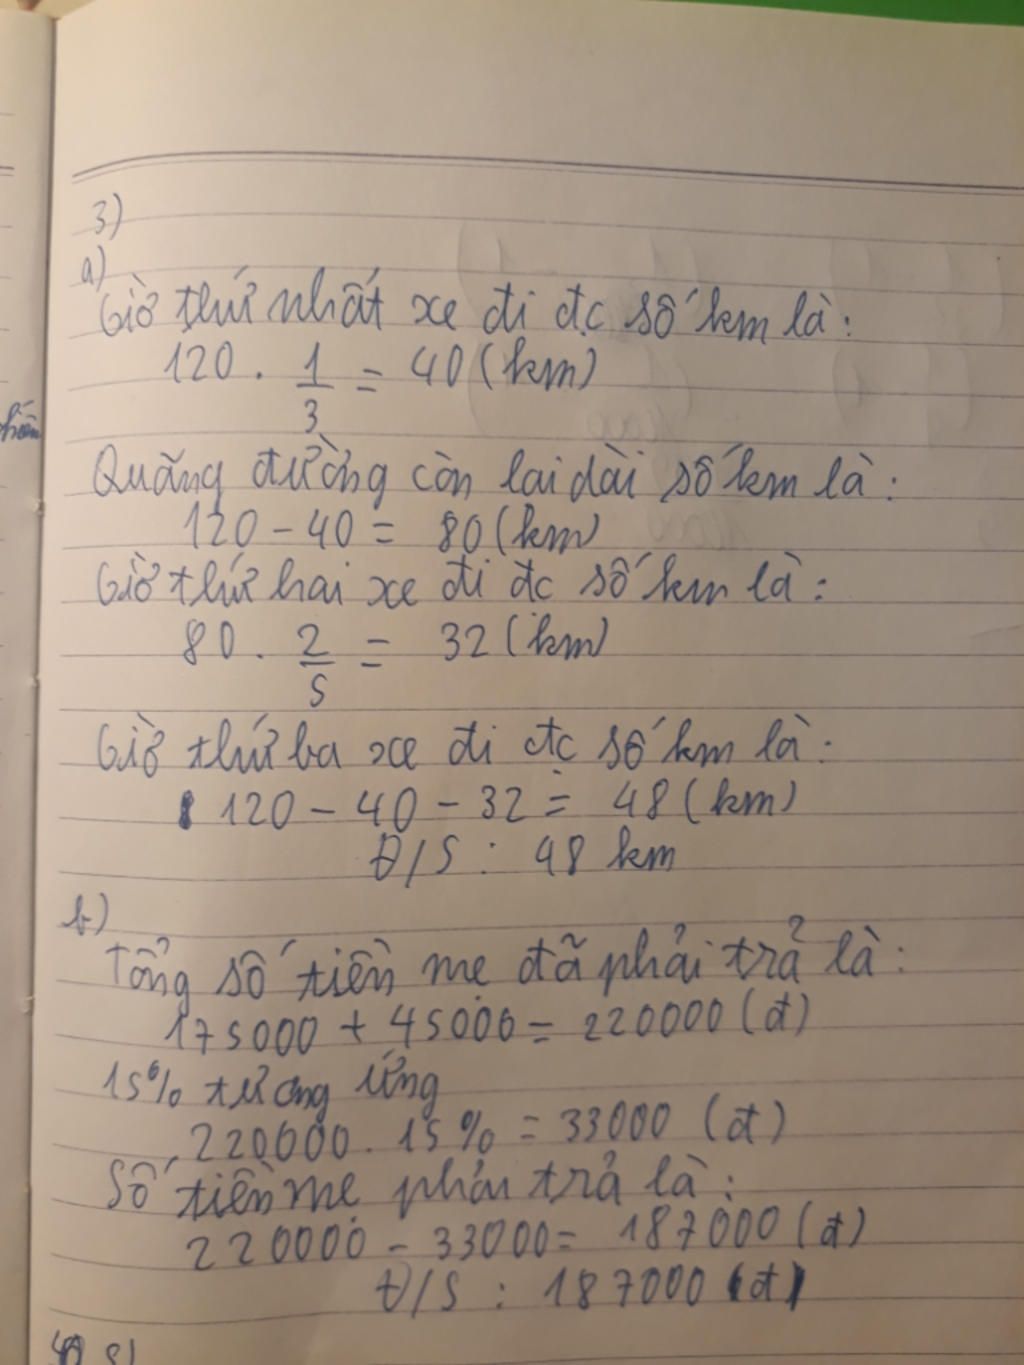 3)
a)
Giờ thứ nhất xe đi đc số km là:
120 . 1/3 = 40 (km)
Quãng đường còn lai dài số km là:
120 - 40 = 80 (km)
Giờ thứ hai xe đi đc số km là:
80 . 2/5 = 32 (km)
Giờ thứ ba xe đi đc số km là:
120 - 40 - 32 = 48 (km)
Đ/S : 48 km
b)
Tổng số tiền mẹ đã phải trả là:
175000 + 45000 = 220000 (đ)
15% tương ứng
220000 . 15% = 33000 (đ)
Số tiền mẹ phải trả là:
220000 - 33000 = 187000 (đ)
Đ/S : 187000 (đ)